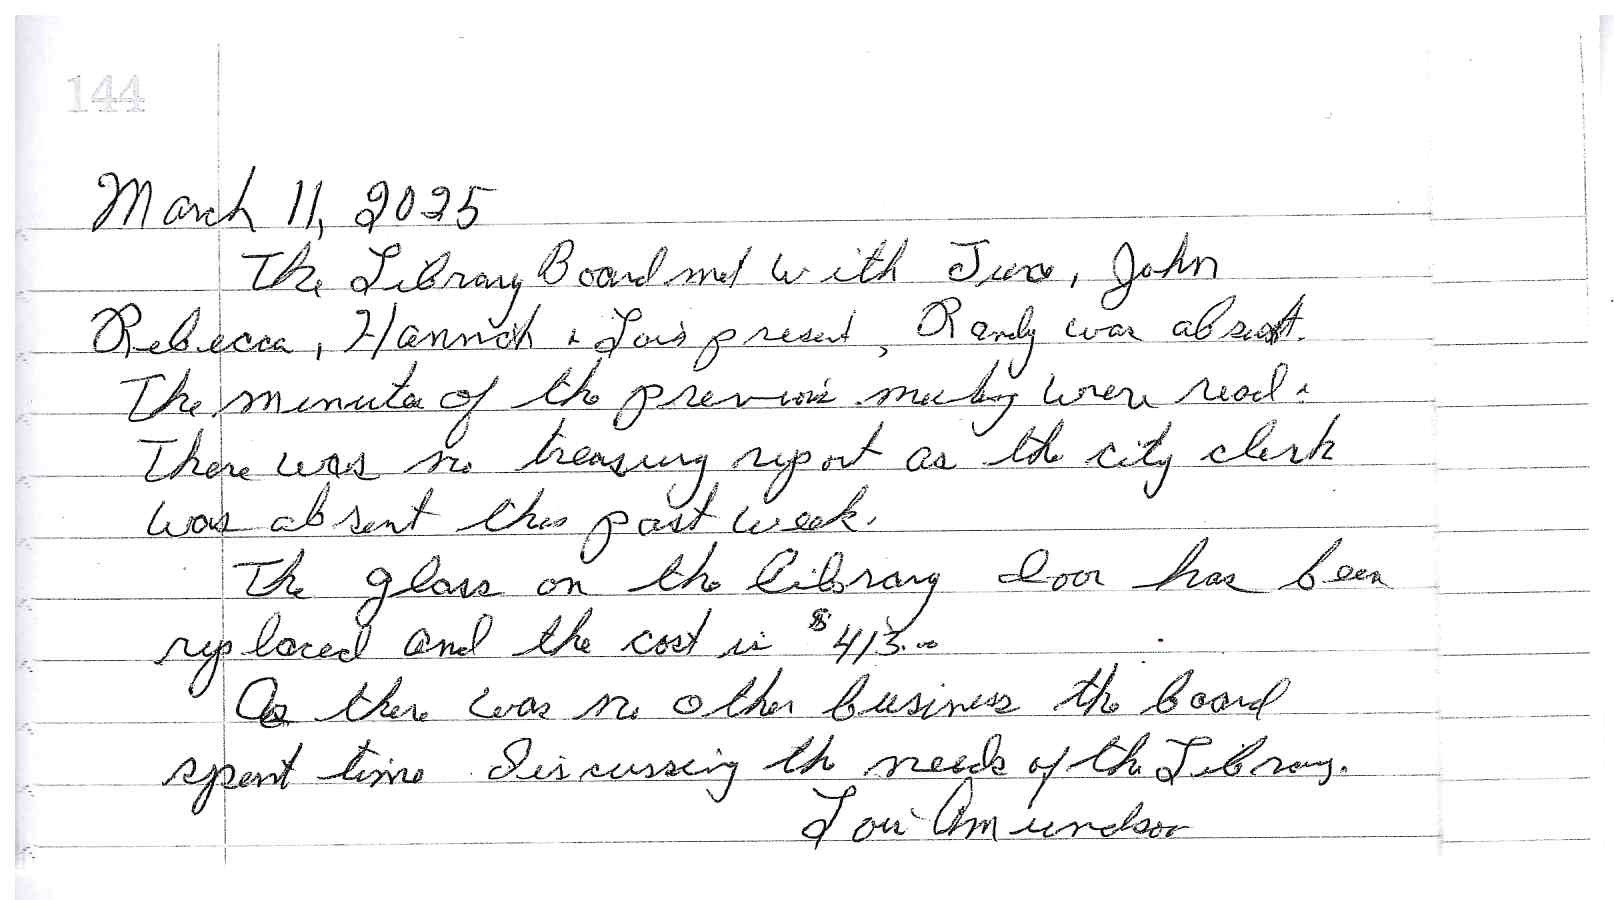 144
March 11, 2025
The Library Board met with June, John
Rebecca, Hannah & Lois present, Randy was absent.
The minutes of the previous meeting were read.
There was no treasury report as the city clerk
was absent this past week.
The glass on the library door has been
replaced and the cost is $413.00
As there was no other business the board
spent time discussing the needs of the Library.
Lois Amundson